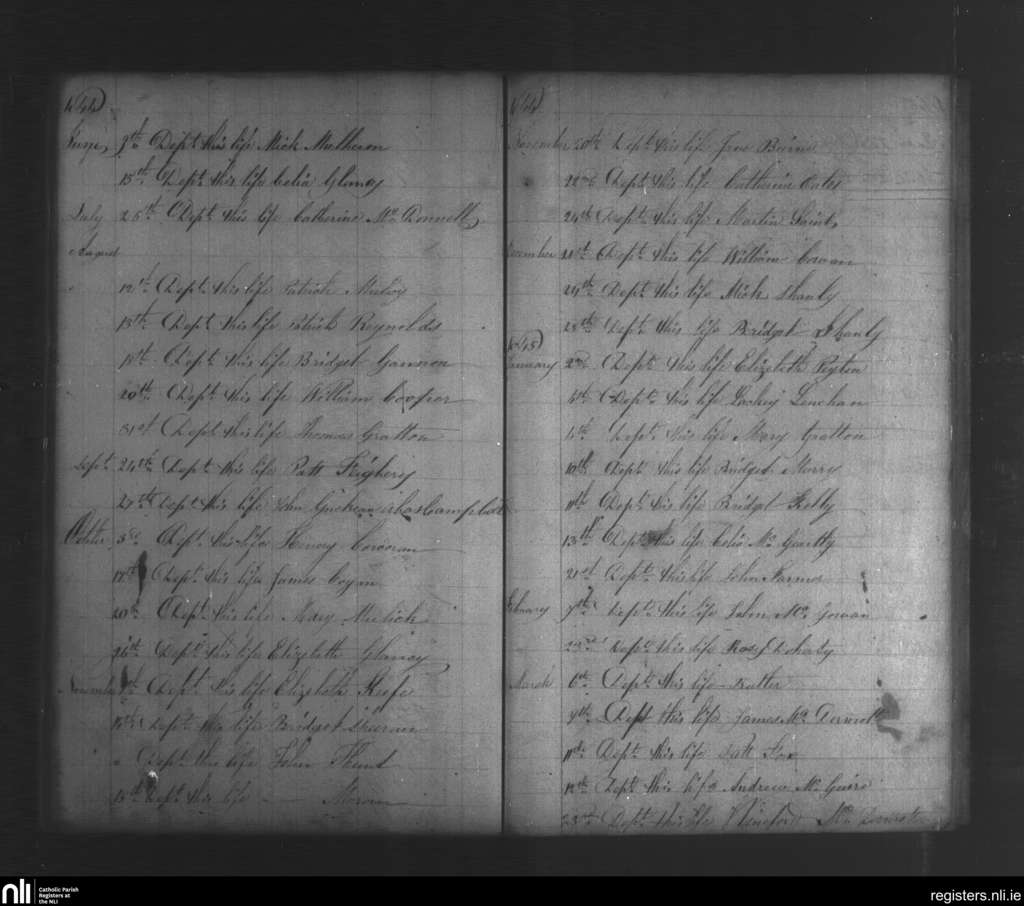 1844
June 9th Dept this life Mick Mulheron
15th Dept this life Celia Glancy
July 25th Dept this life Catherine Mc Donnell
August
12th Dept this life Patrick Mulvy
15th Dept this life Patrick Reynolds
18th Dept this life Bridget Gannon
20th Dept this life William Cooper
31st Dept this life Thomas Gratton
Sept 24th Dept this life Patt Kighery
27th Dept this life John
October 3rd Dept this life Henery Corcoran
17th Dept this life James Cogan
20th Dept this life Mary Mulick
26th Dept this life Elizabeth Glancy
November Dept this life Elizabeth Keefe
15th Dept this life Bridget
" Dept this life John
15th Dept this life Moran
1844
November 20th Dept this life Beirne
22nd Dept this life Catharine Oates
24th Dept this life Martin
December 11th Dept this life William Cowan
24th Dept this life Mick Shanly
28th Dept this life Bridget Shanly
1845
January 2nd Dept this life Elizabeth Peyton
4th Dept this life Lackey Lenehan
4th Dept this life Mary Gratton
10th Dept this life Bridget Morry
11th Dept this life Bridget Kelly
13th Dept this life Celia Mc Geartty
21st Dept this life John
February 7th Dept this life John Mc Gowan
23rd Dept this life Rose Dohady
March 6th Dept this life Butler
9th Dept this life James Mc Dermott
11th Dept this life Patt Fox
12th Dept this life Andrew Mc Guire
23rd Dept this life
nli Catholic Parish
Registers at
the NLI
registers.nli.ie